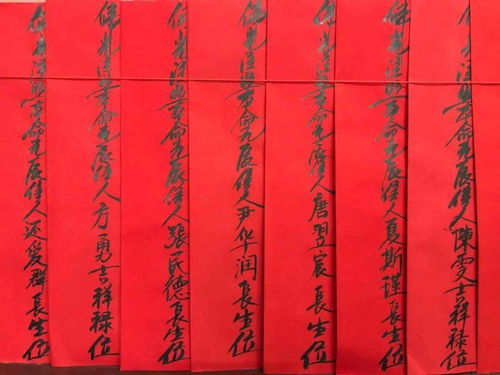 佛光注照本命元辰信人陳雯吉祥禄位
佛光注照本命元辰信人夏斯瑾長生位
佛光注照本命元辰信人唐翌宸長生位
佛光注照本命元辰信人尹华润長生位
佛光注照本命元辰信人張民德長生位
佛光注照本命元辰信人方勇吉祥禄位
佛光注照本命元辰信人还愛群長生位